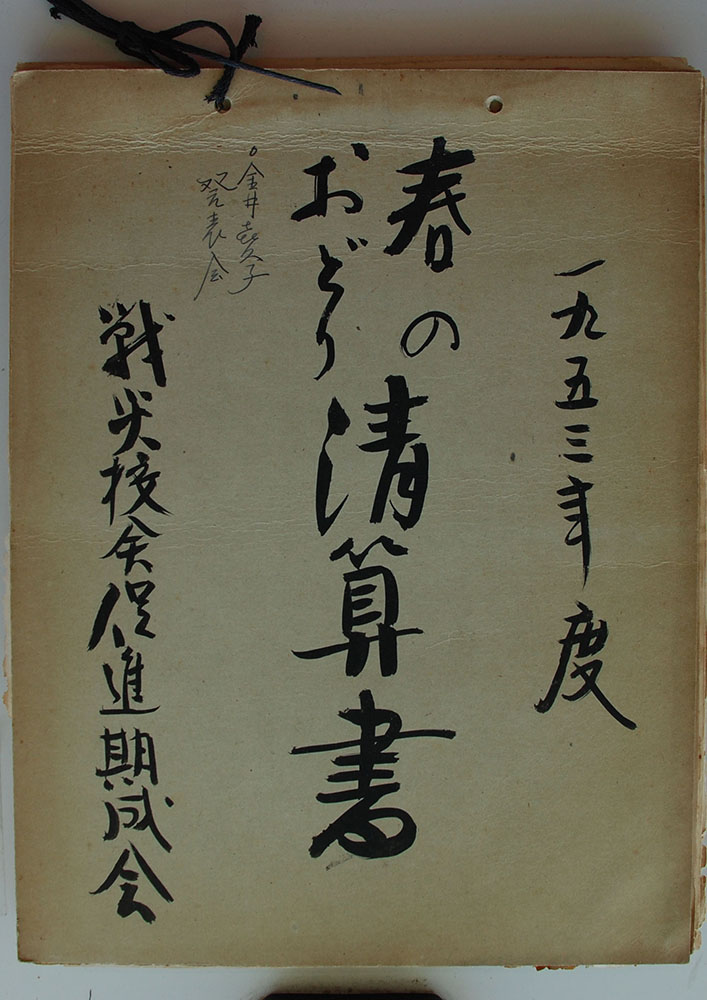 一九五三年度
春の
おどり
清算書
○金井喜久子
発表会
戦災校舎促進期成会